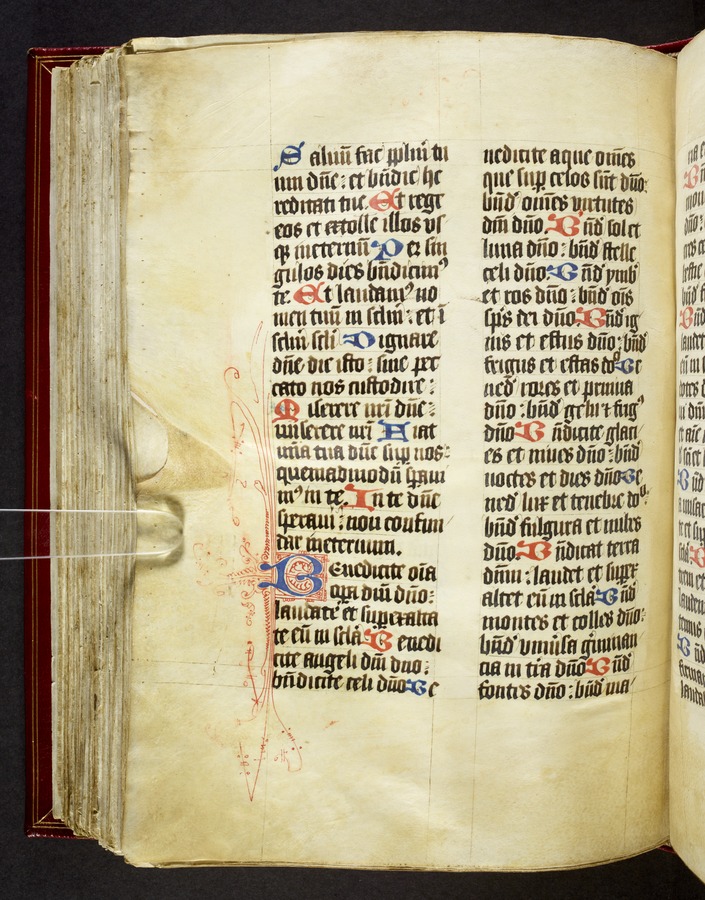 Saluũ fac ppl'm tu
um dñe: et bñdic he
reditati tue. Et rege
eos et extolle illos vs
q; ineternũ Per sin
gulos dies bñdicim9
te. Et laudam9 no
men tuũ in sclm: et ĩ
sclm scli Dignare
dñe die isto: sine pec
cato nos custodire:
Miserere nri dñe:
miserere nri Fiat
mia tua dñe sup nos:
quemadmodũ speraui
m9 in te. In te dñe
speraui: non confun
dar ineternum.
Benedicite oĩa
opera dñi dño:
laudate et superexalta
te eũ in scla Benedi
cite angeli dñi dño:
bñdicite celi dño Be
nedicite aque omẽs
que sup celos sũt dño:
bñd omẽs virtutes
dñi dño Bñd sol et
luna dño: bñd stelle
celi dño Bñd ymb
et ros dño: bñd oĩs
sps dei dño Bñd ig
nis et estus dño: bñd
frigus et estas do Be
ned rores et pruina
dño: bñd gelu et frig9
dño Bñdicite glaci
es et niues dño: bñd
noctes et dies dño Be
ned lux et tenebre do:
bñd fulgura et nubes
dño Bñdicat terra
dñm: laudet et super
altet eũ in scla Bñd
montes et colles dño:
bñd vniũsa gĩminan
cia in tĩra dño Bñd
fontes dño: bñd ma